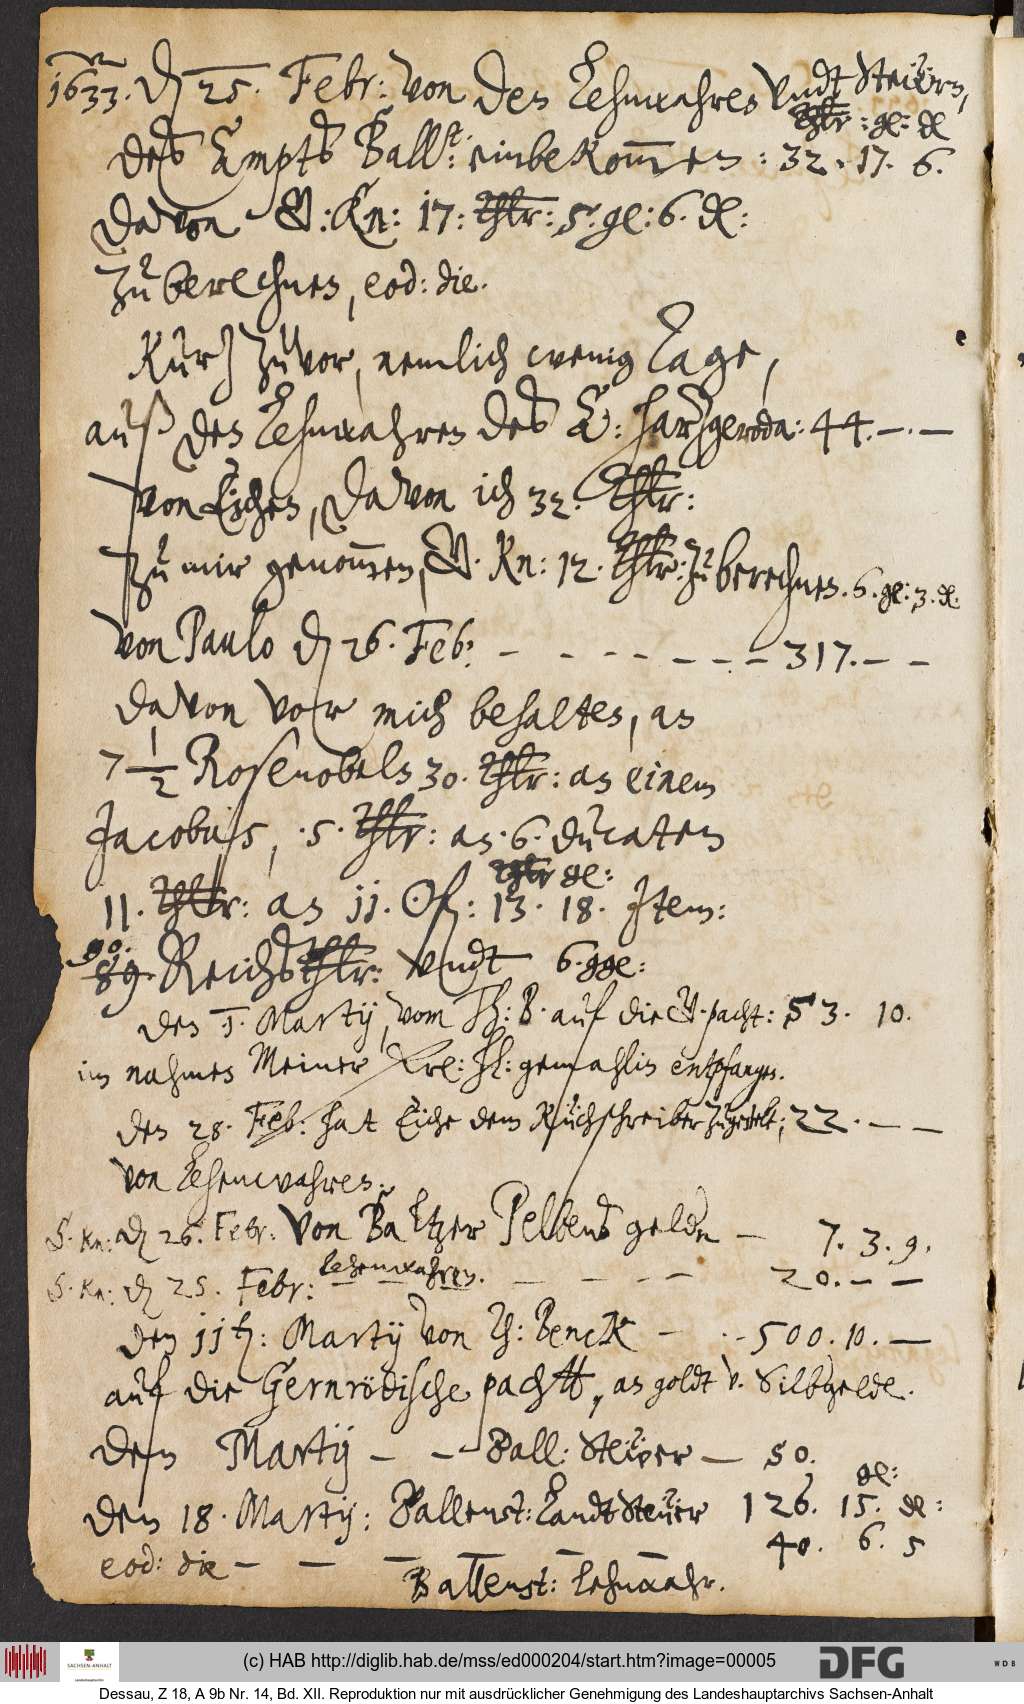 1633. den 25. Febr: Von den Lehnwahren Vndt Steüern,
thlr: gl: dl
des Ampts Ballst: einbekommen: 32. 17. 6.
Davon V: Kn: 17: thlr: 5. gl: 6. dl:
Zü berechnen, eod: die.
Kurtz Züvor, nemlich wenig Tage,
auß den Lehnwahren des A: Hartzgeroda: 44. – . –
von Eichen, Davon ich 32. thlr:
Zü mir genommen, V. Kn: 12. thlr: Zü berechnen. 6. gl: 3. dl.
Von Paulo den 26. Feb: – – – – – – – 317. – –
Davon vor mich behalten, an
7 1/2 Rosenobels 30. thlr: an einem
Jacobuss, . 5. thlr: an . 6. Dücaten
thlr gl:
11. thlr: an jj. : 13. 18. Jtem:
90.
89. Reichsthlr: Vndt 6. ggl:
Den 1. Martij, vom Th: B. auf die pacht: 53. 10.
im nahmen Meiner frl: hl: gemahlin entpfangen.
Den 28. Feb: hat Eiche dem Küchschreiber Zügestelt; 22. – –
Von Lehenwahren.
S. Kn: den 26. Febr: Von Baltzer geldn – 7. 3. 9.
S. Kn: den 25. Febr: Lehenwahren. – – – – 20. – –
Den jj t: Martij Von Th: Benck – . - 500. 10. –
auf die Gernrödische pachtt, an goldt v. Silbgelde.
Den Martij – – Ball: Steüer – 50.
gl:
Den 18. Martij: Ballenst: Landt Steüer 126. 15. dl:
40. 6. 5
eod: die – – – – –
Ballenst: Lehnwahr.
(c) HAB http://diglib.hab.de/mss/ed000204/start.htm?image=00005
SACHSEN-ANHALT
DFG
WDB
Dessau, Z 18, A 9b Nr. 14, Bd. XII. Reproduktion nur mit ausdrücklicher Genehmigung des Landeshauptarchivs Sachsen-Anhalt